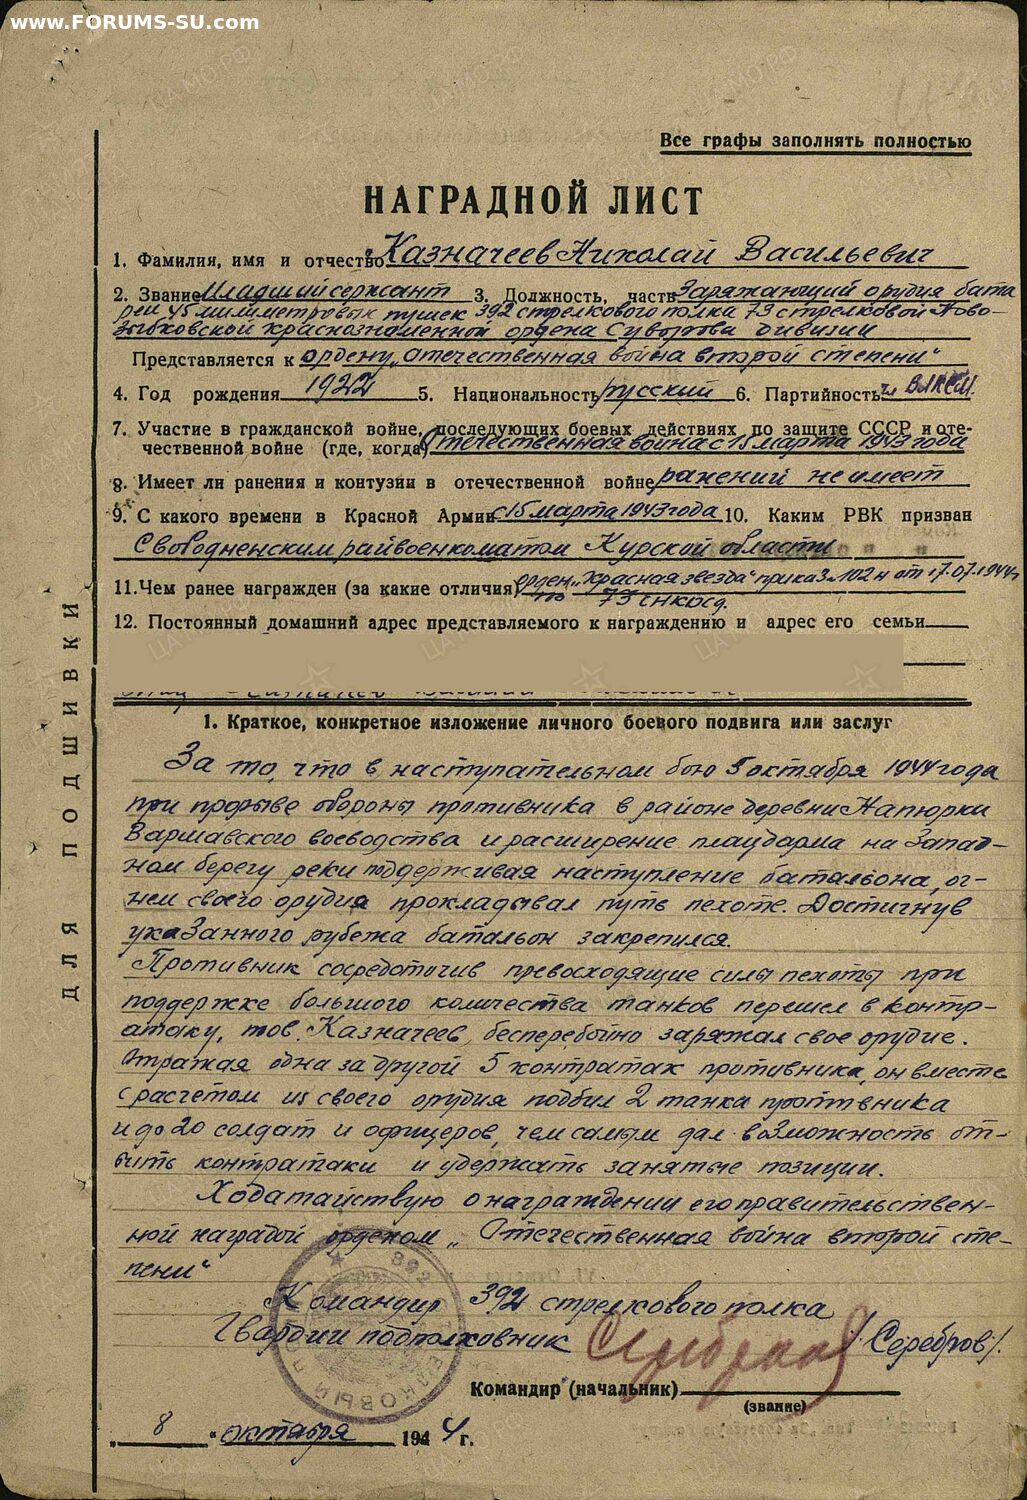 www.FORUMS-SU.com
Все графы заполнять полностью
НАГРАДНОЙ ЛИСТ
1. Фамилия, имя и отчество Казначеев Николай Васильевич
2. Звание Младший сержант 3. Должность, часть Заряжающий орудия бата
реи 45 милиметровых пушек 392 стрелкового полка 73 стрелковой Ново-
зыбковской краснознаменной ордена Суворова дивизии
Представляется к ордену „Отечественная война второй степени"
4. Год рождения 1922 5. Национальность русский 6. Партийность чл ВЛКСМ.
7. Участие в гражданской войне, последующих боевых действиях по защите СССР и оте-
чественной войне (где, когда) Отечественная война с 15 марта 1943 года
8. Имеет ли ранения и контузии в отечественной войне ранений не имеет
9. С какого времени в Красной Армии с 15 марта 1943 года 10. Каким РВК призван
Свободненским райвоенкоматом Курской области
11. Чем ранее награжден (за какие отличия) орден „Красная звезда" приказ №102н от 17.07.1944г
по 73 СНКОСд.
12. Постоянный домашний адрес представляемого к награждению и адрес его семьи
1. Краткое, конкретное изложение личного боевого подвига или заслуг
За то, что в наступательном бою 5 октября 1944 года
при прорыве обороны противника в районе деревни Напюрки
Варшавского воеводства и расширение плацдарма на Запад-
ном берегу реки поддерживая наступление батальона, ог-
нем своего орудия прокладывал путь пехоте. Достигнув
указанного рубежа батальон закрепился.
Противник сосредоточив превосходящие силы пехоты при
поддержке большого количества танков перешел в контр-
атаку, тов. Казначеев бесперебойно заряжал свое орудие.
Отражая одна за другой 5 контратак противника, он вместе
с расчетом из своего орудия подбил 2 танка противника
и до 20 солдат и офицеров, чем самым дал возможность от-
бить контратаки и удержать занятые позиции.
Ходатайствую о награждении его правительствен-
ной наградой орденом „Отечественная война второй сте-
пени"
Командир 392 стрелкового полка
Гвардии подполковник Серебров /Серебров/.
Командир (начальник)
(звание)
8 „октября 1944 г.
ДЛЯ ПОДШИВКИ